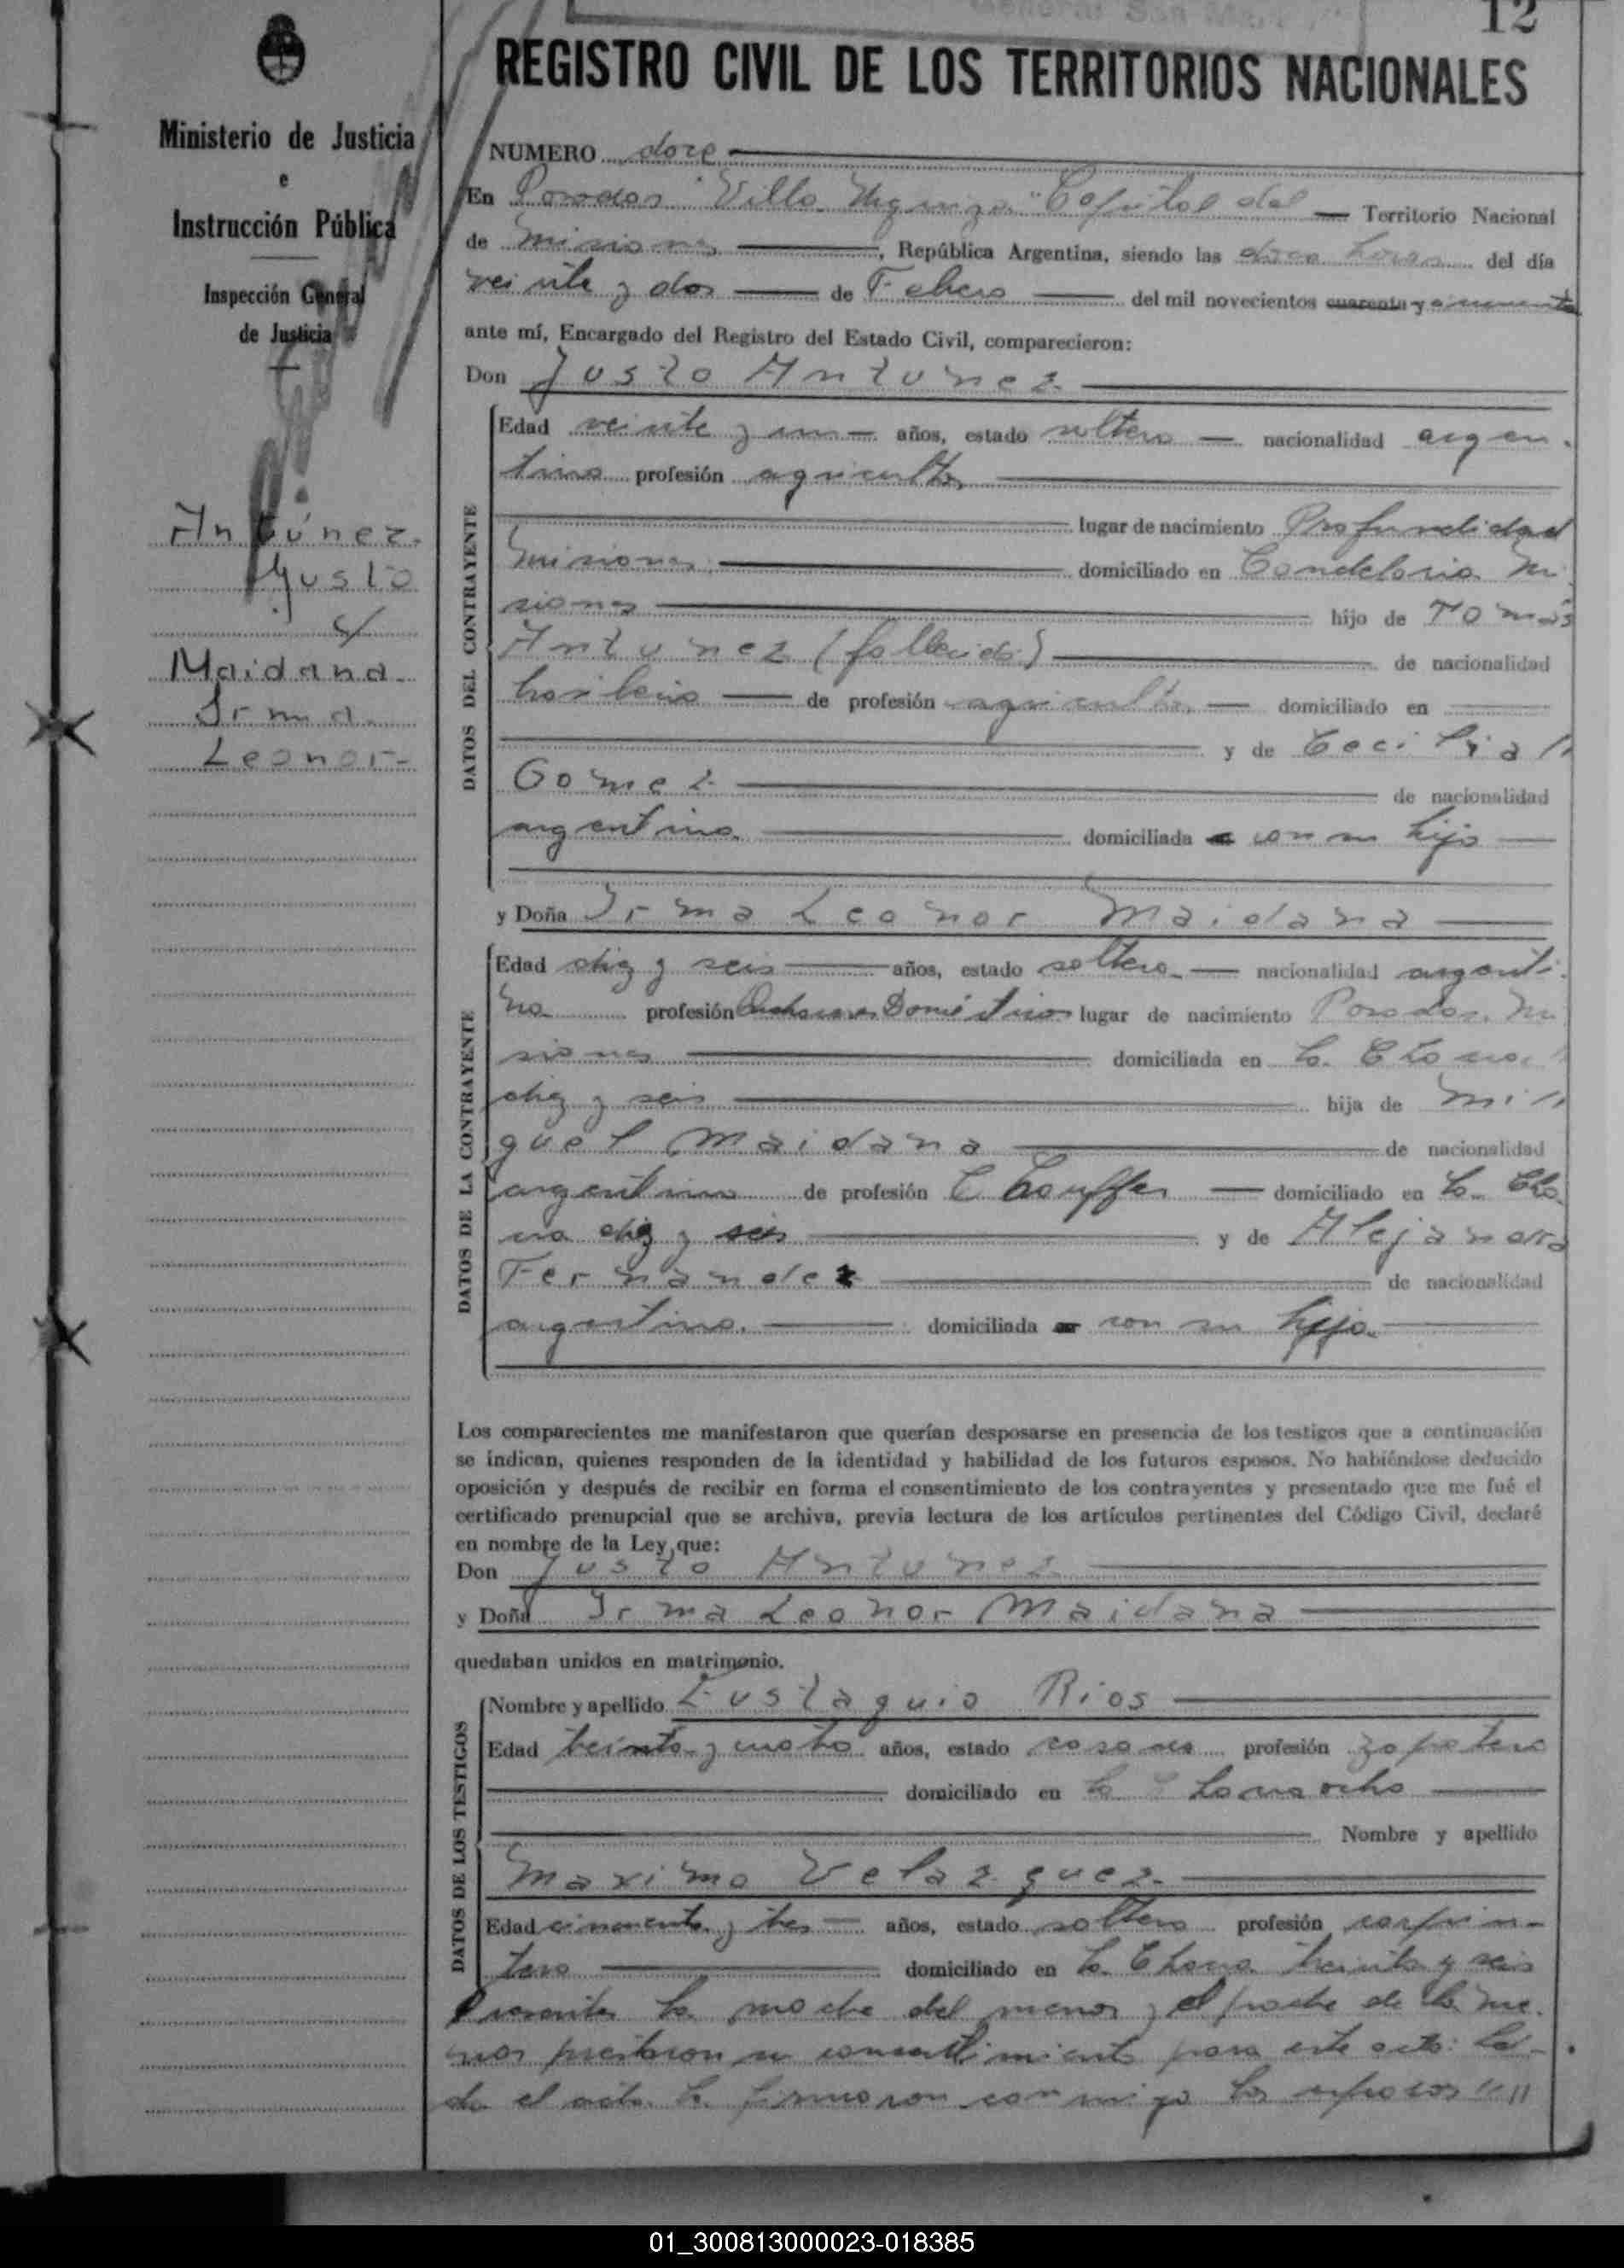 12
REGISTRO CIVIL DE LOS TERRITORIOS NACIONALES
Ministerio de Justicia
e
Instrucción Pública
Inspección General
de Justicia
Antúnez
Justo
c/
Maidana
Irma
Leonor-
NUMERO doce
En Posadas "Villa Urquiza" Capital del Territorio Nacional
de Misiones, República Argentina, siendo las doce horas del día
veinte y dos de Febrero del mil novecientos cuarenta y cincuenta
ante mí, Encargado del Registro del Estado Civil, comparecieron:
Don Justo Antunez
DATOS DEL CONTRAYENTE
Edad veinte y un años, estado soltero nacionalidad argen-
tino profesión agricultor
lugar de nacimiento Profundidad
Misiones domiciliado en Candelaria Mi
siones hijo de Tomás
Antunez (fallecido) de nacionalidad
brasilera de profesión agricultor domiciliado en
y de Cecilia
Gomez de nacionalidad
argentina domiciliada con su hijo
y Doña Irma Leonor Maidana
DATOS DE LA CONTRAYENTE
Edad diez y seis años, estado soltera nacionalidad argenti-
na profesión Quehaceres Domésticos lugar de nacimiento Posadas Mi
siones domiciliada en la Chacra
diez y seis hija de Mi
guel Maidana de nacionalidad
argentino de profesión Chauffer domiciliado en la Cha
cra diez y seis y de Alejandra
Fernandez de nacionalidad
argentina domiciliada con su hija
Los comparecientes me manifestaron que querían desposarse en presencia de los testigos que a continuación
se indican, quienes responden de la identidad y habilidad de los futuros esposos. No habiéndose deducido
oposición y después de recibir en forma el consentimiento de los contrayentes y presentado que me fué el
certificado prenupcial que se archiva, previa lectura de los artículos pertinentes del Código Civil, declaré
en nombre de la Ley, que:
Don Justo Antunez
y Doña Irma Leonor Maidana
quedaban unidos en matrimonio.
DATOS DE LOS TESTIGOS
Nombre y apellido Eustaquio Rios
Edad treinta y cuatro años, estado casado profesión zapatero
domiciliado en la Chacra ocho
Nombre y apellido
Maximo Velazquez
Edad cincuenta y tres años, estado soltero profesión carpin-
tero domiciliado en la Chacra treinta y seis
Presentes la madre del menor y el padre de la me-
nor prestaron su consentimiento para este acto: Lei-
da el acta la firmaron conmigo los esposos
01_300813000023-018385